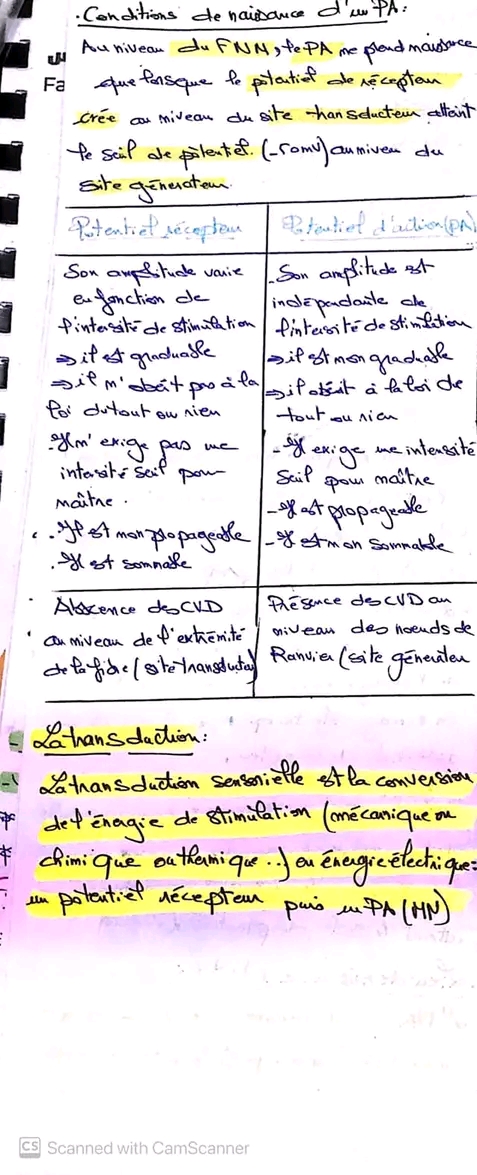 . Conditions de naissance d'un PA:
Au niveau du FNM, le PA ne prend naissance
Fa
que lorsque le potentiel de récepteur
crée au niveau du site transducteur atteint
le seuil de potentiel. (-50mv) au niveau du
site générateur.
Potentiel récepteur
Son amplitude varie
en fonction de
l'intensité de stimulation
⇒ il est graduable
⇒ il n'obéit pas à la
loi du tout ou rien
- Il n'exige pas une
intensité seuil pour
naître .
. Il est non propageable
. Il est sommable
Potentiel d'action (PA)
- Son amplitude est
indépendante de
l'intensité de stimulation
⇒ il est non graduable
⇒ il obéit à la loi de
tout ou rien
- Il exige une intensité
seuil pour naître
- Il est propageable
- Il est non sommable
Abscence des CVD
au niveau de l'extrémité
de la fibre (site transducteur)
Présence des CVD au
niveau des noeuds de
Ranvier (site générateur
- La transduction:
La transduction sensorielle est la conversion
de l'énergie de stimulation (mécanique ou
chimique ou thermique ..) en énergie électrique:
un potentiel récepteur puis un PA (MN)
CS Scanned with CamScanner